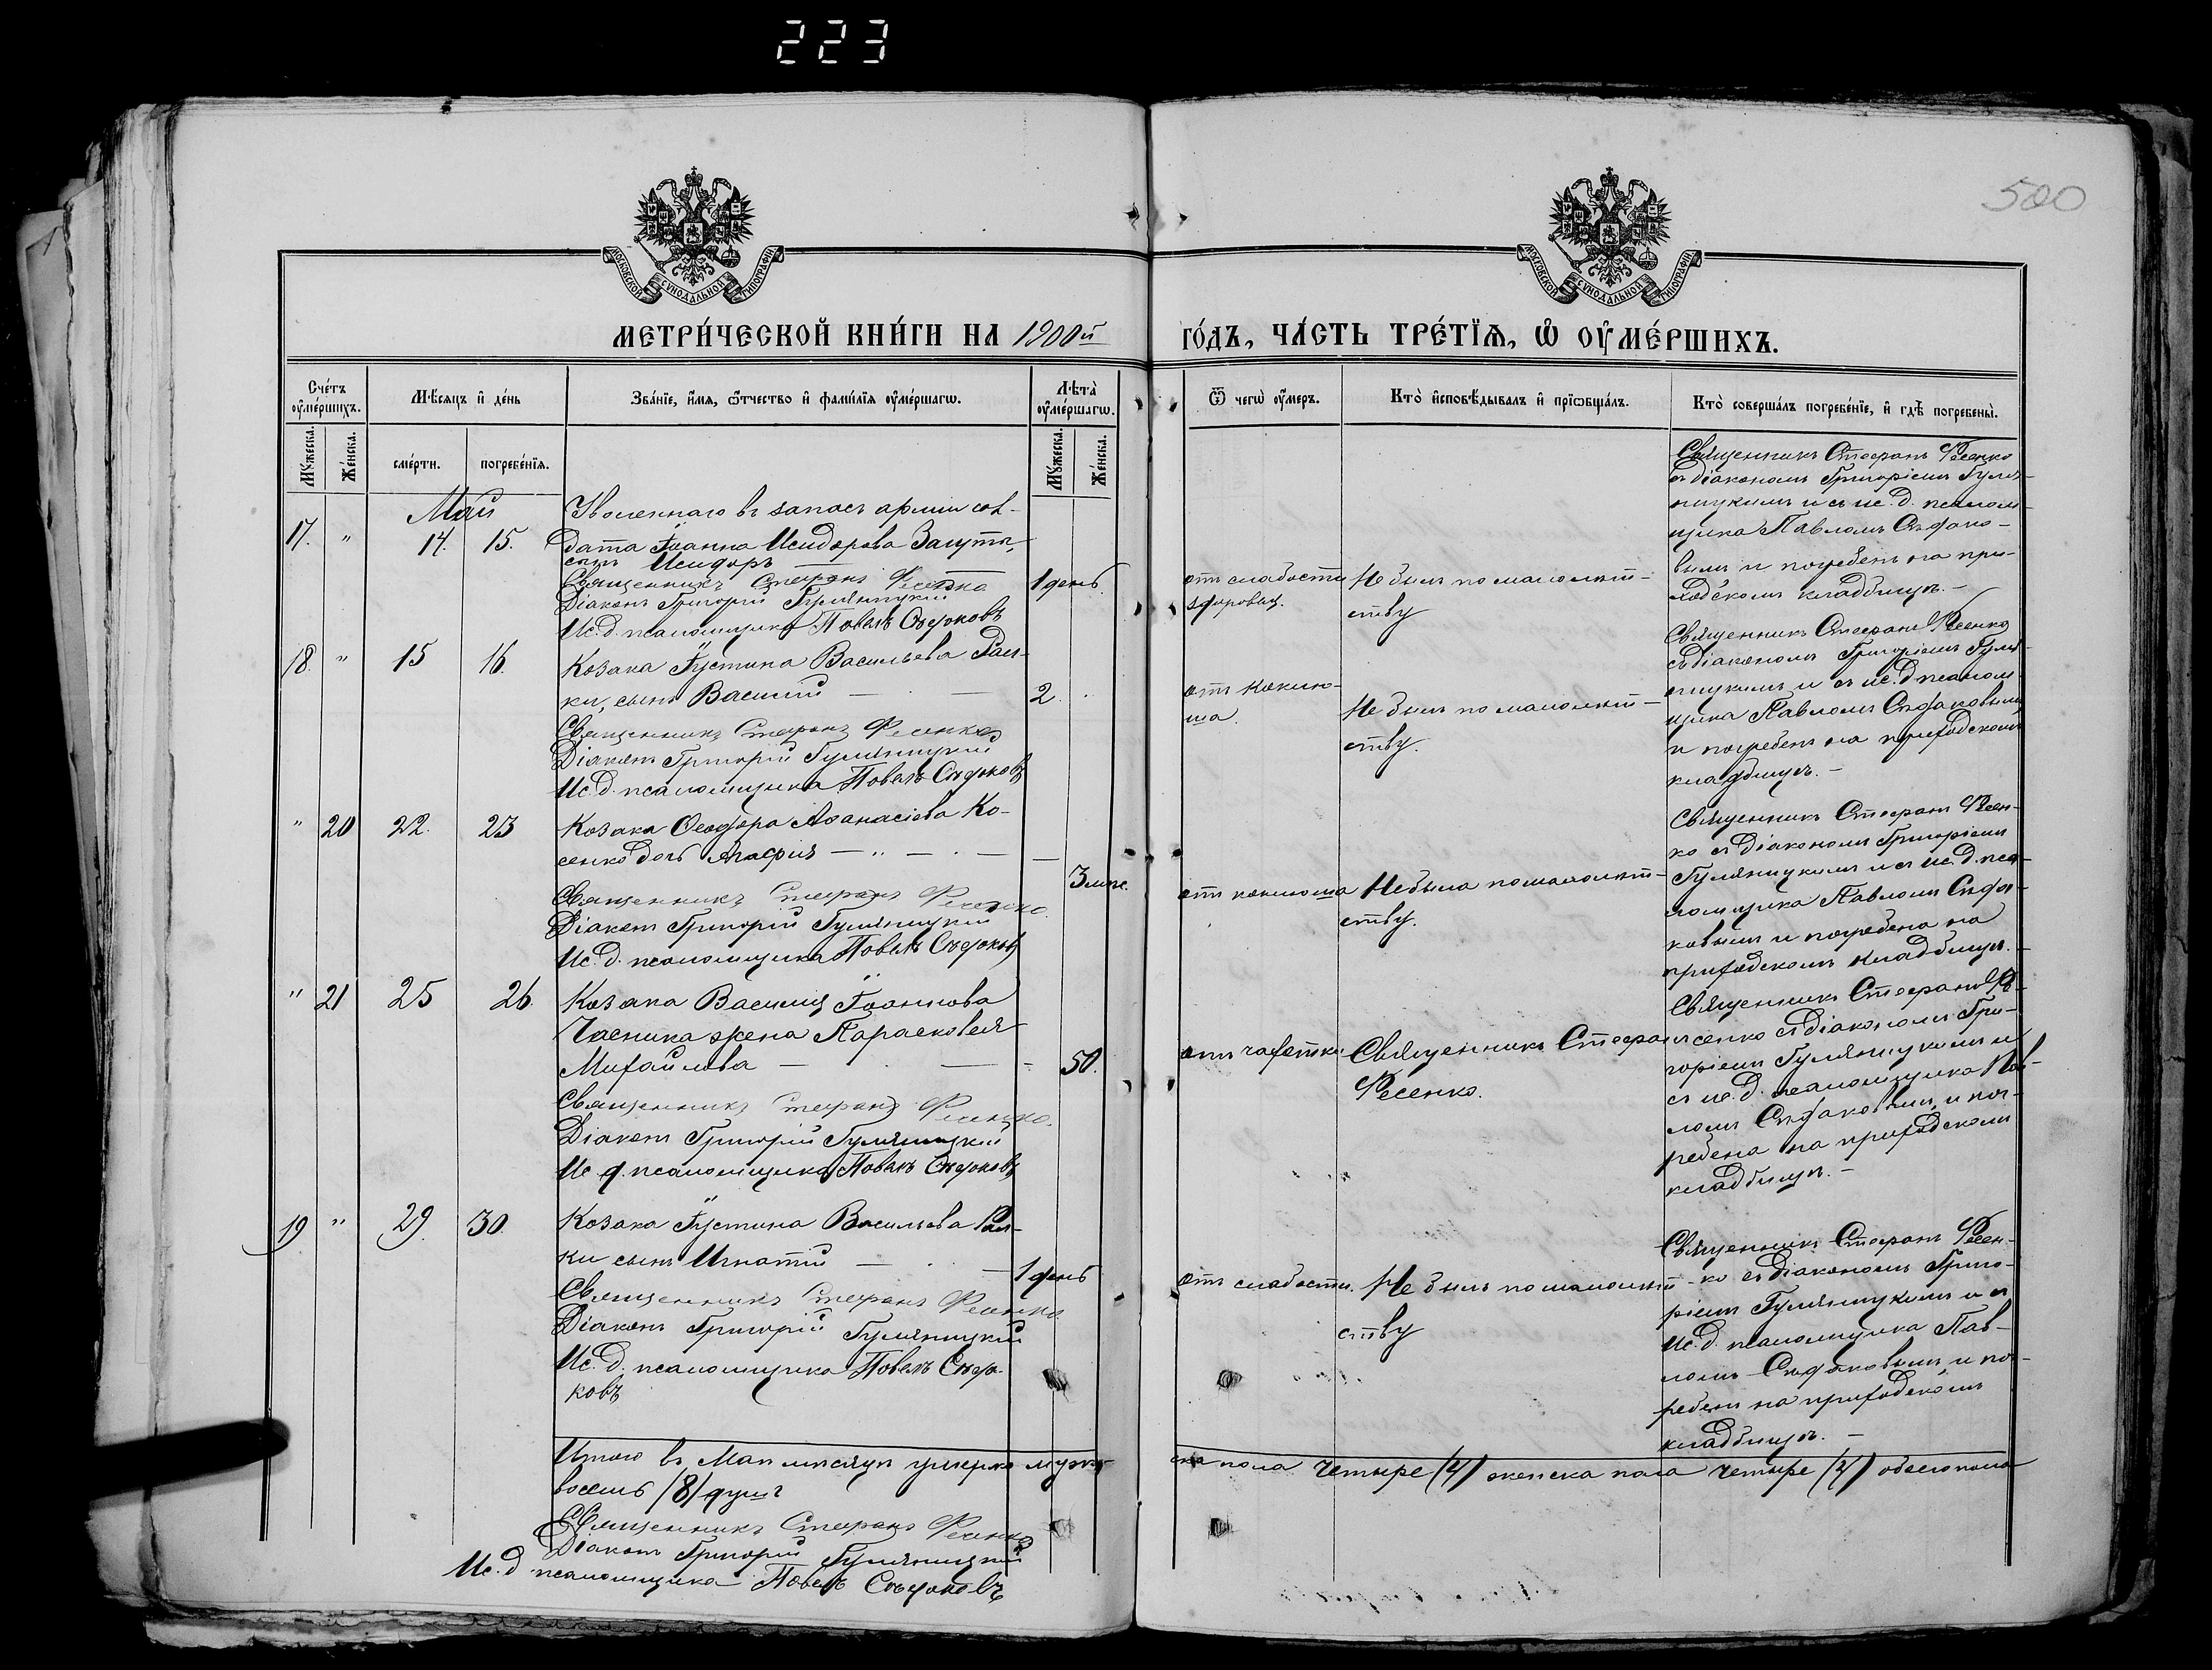 223
500
МОСКОВСКОЙ СѴНОДАЛЬНОЙ ТИПОГРАФІИ
МОСКОВСКОЙ СѴНОДАЛЬНОЙ ТИПОГРАФІИ
МЕТРИ́ЧЕСКОЙ КНИ́ГИ НА 1900й
ГО́ДЪ, ЧА́СТЬ ТРЕ́ТЇѦ, Ѡ҆ ОУ҆МЕ́РШИХЪ.
Сче́тъ оу҆ме́ршихъ.
Мꙋжеска.
Же́нска.
Мѣ́сяцъ и҆ де́нь
сме́рти.
погребе́нїѧ.
Зва́нїе, и҆́мѧ, ѻ҆́тчество и҆ фамі́лїѧ оу҆ме́ршагѡ.
Лѣта̀ оу҆ме́ршагѡ.
Мꙋжеска.
Же́нска.
Ѿ чегѡ̀ оу҆́меръ.
Кто̀ и҆сповѣ́дывалъ и҆ прїѡбща́лъ.
Кто̀ соверша́лъ погребе́нїе, и҆ гдѣ̀ погребены̀.
Май
17. " 14. 15.
Уволеннаго въ запасъ арміи сол-
дата Іоанна Исидорова
сынъ Исидоръ —
1 день
Священникъ Стефанъ Фесенко
Діаконъ Григорій Гуляницкій
Ис. д. псаломщика Павелъ Сѣдаковъ
отъ слабости
здоровья.
Не былъ по малолѣт-
ству
Священникъ Стефанъ Фесенко
съ діакономъ Григоріемъ Гуля-
ницкимъ и съ ис. д. псалом-
щика Павломъ Сѣдако-
вымъ и погребенъ на при-
ходскомъ кладбищѣ. —
18. " 15 16.
Козака Іустина Васильева
ки, сынъ Василій — —
2.
Священникъ Стефанъ Фесенко
Діаконъ Григорій Гуляницкій
Ис. д. псаломщика Павелъ Сѣдаковъ
отъ коклю-
ша.
Не былъ по малолѣт-
ству.
Священникъ Стефанъ Фесенко
съ діакономъ Григоріемъ Гуля-
ницкимъ и съ ис. д. псалом-
щика Павломъ Сѣдаковымъ
и погребенъ на приходскомъ
кладбищѣ. —
" 20 22. 23
Козака Ѳеодора Аѳанасіева Ко-
сенко дочь Агафія —
3 мѣс.
Священникъ Стефанъ Фесенко
Діаконъ Григорій Гуляницкій
Ис. д. псаломщика Павелъ Сѣдаковъ
отъ коклюша
Не была по малолѣт-
ству.
Священникъ Стефанъ Фесен-
ко съ діакономъ Григоріемъ
Гуляницкимъ и съ ис. д. пса-
ломщика Павломъ Сѣда-
ковымъ и погребена на
приходскомъ кладбищѣ. —
" 21 25 26.
Козака Василія Іоаннова
Часника жена Парасковея
Михайлова —
50.
Священникъ Стефанъ Фесенко.
Діаконъ Григорій Гуляницкій
Ис. д. псаломщика Павелъ Сѣдаковъ
отъ чахотки
Священникъ Стефанъ
Фесенко.
Священникъ Стефанъ Фе-
сенко съ діакономъ Гри-
горіемъ Гуляницкимъ и
съ ис. д. псаломщика Пав-
ломъ Сѣдаковымъ и пог-
ребена на приходскомъ
кладбищѣ. —
19. " 29. 30.
Козака Іустина Васильева
ки сынъ Игнатій —
1 день
Священникъ Стефанъ Фесенко
Діаконъ Григорій Гуляницкій
Ис. д. псаломщика Павелъ Сѣда-
ковъ
отъ слабости.
Не былъ по малолѣт-
ству
Священникъ Стефанъ Фесен-
ко съ діакономъ Григо-
ріемъ Гуляницкимъ и съ
ис. д. псаломщика Пав-
ломъ Сѣдаковымъ и пог-
ребенъ на приходскомъ
кладбищѣ. —
Итого въ Маѣ мѣсяцѣ умерло мужес-
ка пола четыре (4) женска пола четыре (4) обоего пола
восемь (8) душъ
Священникъ Стефанъ Фесенко
Діаконъ Григорій Гуляницкій
Ис. д. псаломщика Павелъ Сѣдаковъ